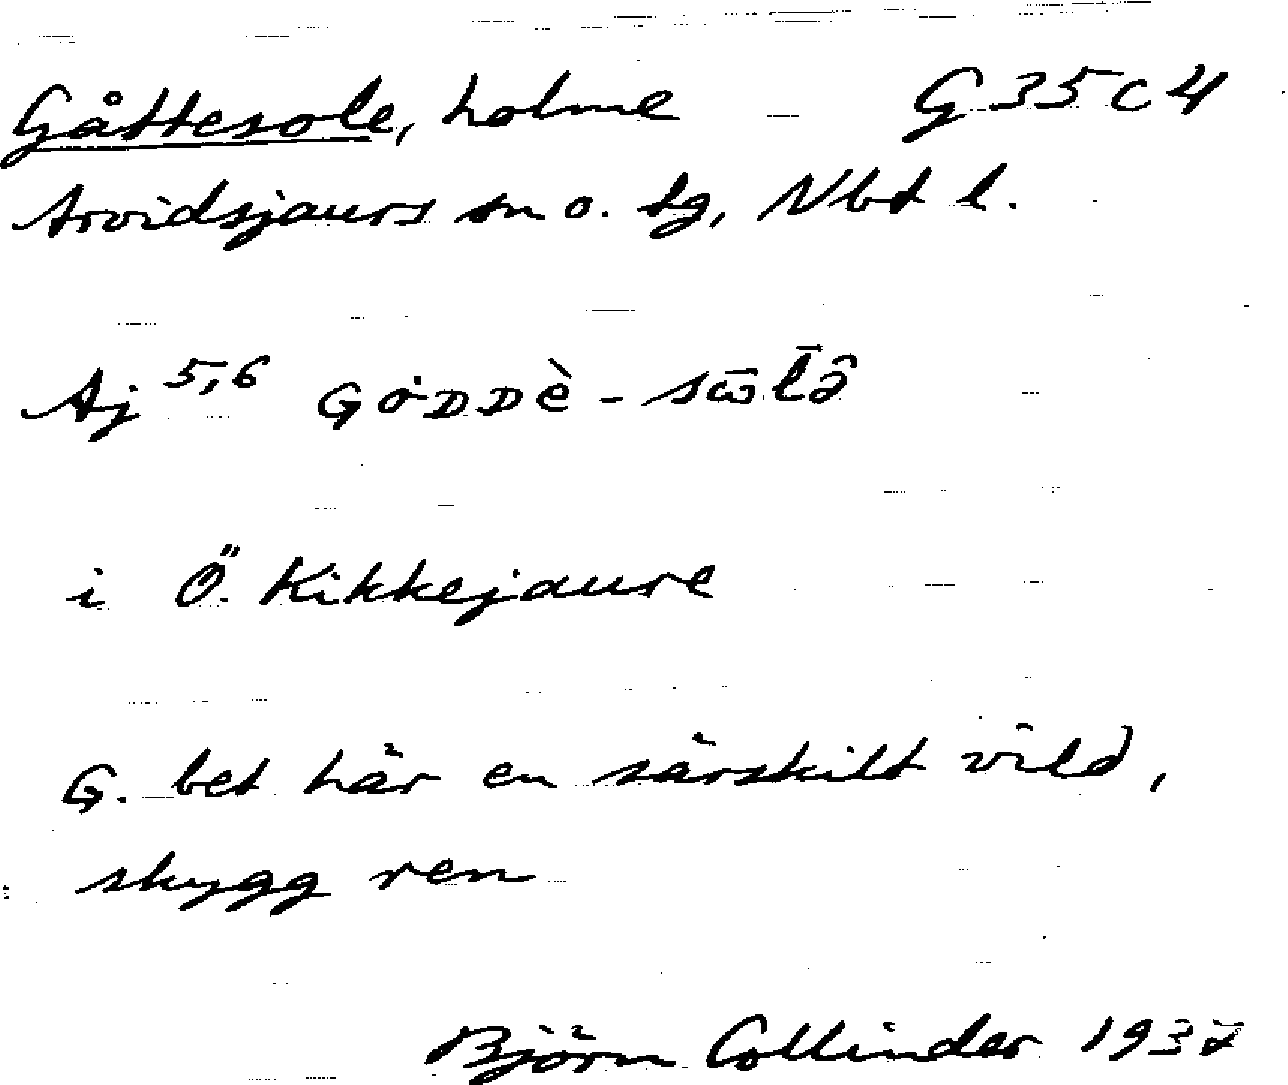 Gåttesole, holme G 35 c 4
Arvidsjaurs sn o. tg, Nbt l.
Aj 5,6 GȯDDè - sω̄l̄ə̂
i Ö. Kikkejaure
G. bet här en särskilt vild,
skygg ren
Björn Collinder 1937